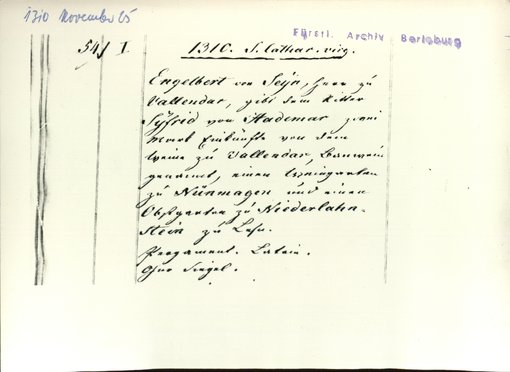 1310 November 25
Fürstl. Archiv Berleburg
54 I. 1310. S. Cathar. virg.
Engelbert von Seÿn, Herr zu
Vallendar, gibt dem Ritter
Sÿfrid von Hademar zwei
Mark Einkünfte von dem
Weine zu Vallendar, Bannwein
genannt, einen Weingarten
zu Nünmagen und einen
Obstgarten zu Niederlahn-
stein zu Lehn.
Pergament. Latein.
Ohne Siegel.